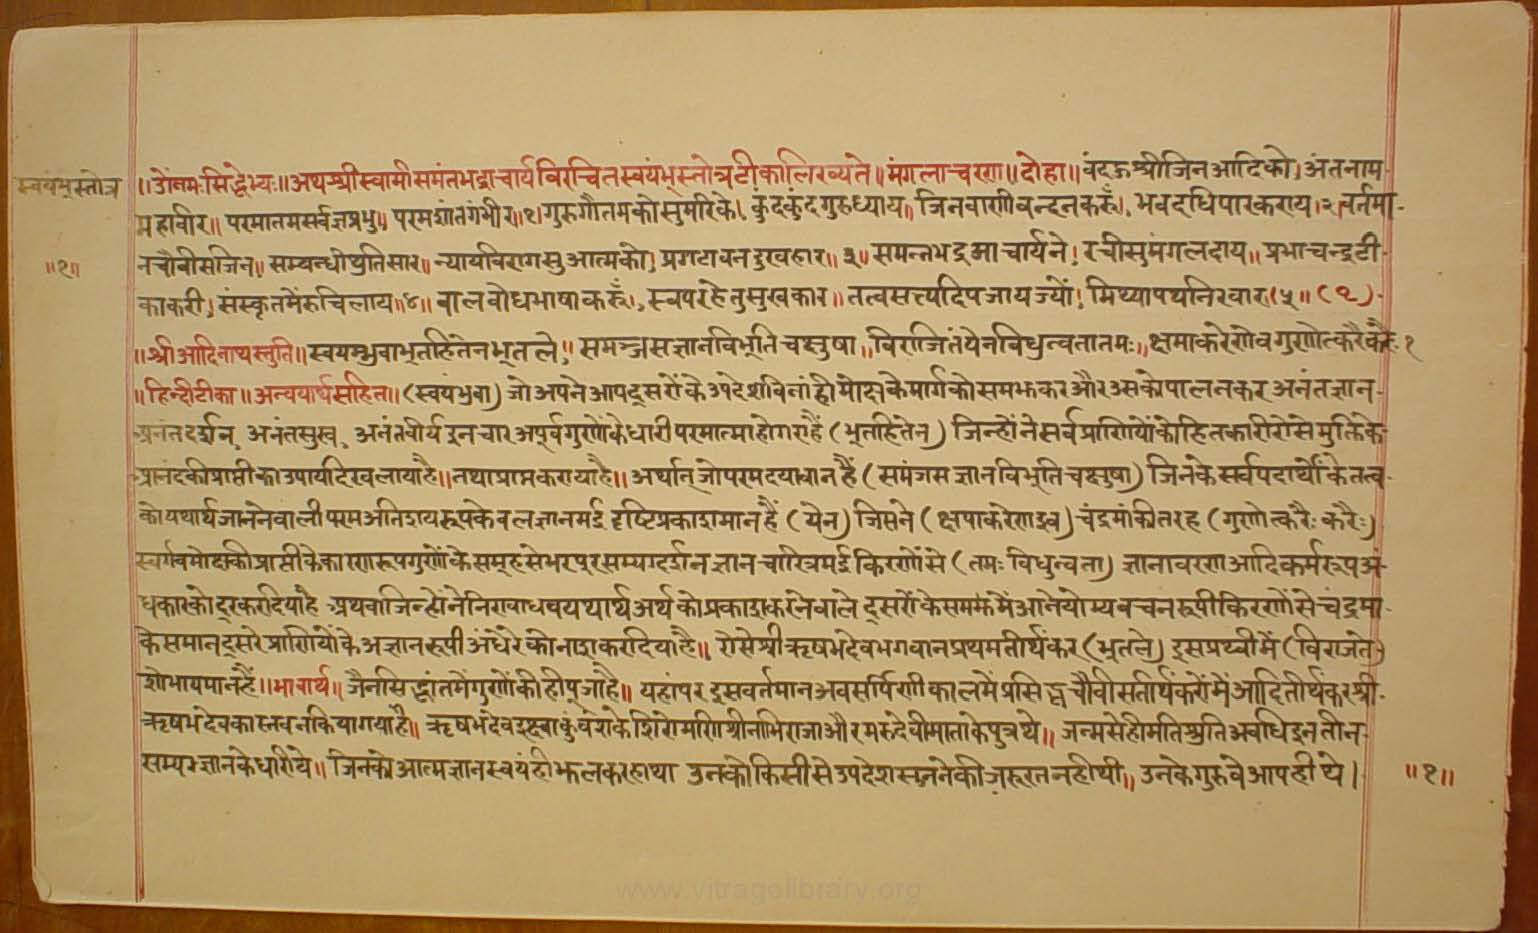 स्वयंभूस्तोत्र
॥ओंनमःसिद्धेभ्यः॥अथश्रीस्वामीसमंतभद्राचार्यविरचितस्वयंभूस्तोत्रटीकालिख्यते॥मंगलाचरण॥दोहा॥वंदऊश्रीजिनआदिको।अंतनाम
महावीर॥परमातमसर्वज्ञप्रभु॥परमशांतगंभीर॥१।गुरुगौतमकोसुमरिके।कुंदकुंदगुरुध्याय॥जिनवाणीवन्दनकरूँ।भवदधिपारकराय।२।वर्तमा-
॥१॥
नचौवीसजिन॥सम्बन्धीथुतिसार॥न्यायविरागसुआत्मको।प्रगटावनदुखहार॥३॥समन्तभद्रआचार्यने।रचीसुमंगलदाय॥प्रभाचन्द्रटी-
काकरी।संस्कृतमेंरुचिलाय॥४॥बालबोधभाषाकरूँ।स्वपरहेतुसुखकार॥तत्वसत्यदिपजायज्यों।मिथ्यापथनिरवार।५॥(१)-
॥श्रीआदिनाथस्तुति॥स्वयम्भुवाभूतहितेनभूतले॥समञ्जसज्ञानविभूतिचक्षुषा॥विराजितंयेनविधुन्वतातमः॥क्षमाकरेणेवगुणोत्करैःकरैः१
॥हिन्दीटीका॥अन्वयार्थसहित॥(स्वयंभुवा)जोअपनेआपदूसरोंकेउपदेशविनांहीमोक्षकेमार्गकोसमझकरऔरउसकोपालनकरअनंतज्ञान-
अनंतदर्शन,अनंतसुख,अनंतवीर्यइनचारअपूर्वगुणोंकेधारीपरमात्माहोगएहैं(भूतहितेन)जिन्होंनेसर्वप्राणियोंकोहितकारीऐसेमुक्तिके-
आनंदकीप्राप्तीकाउपायदिखलायाहै॥तथाप्राप्तकरायाहै॥अर्थात्जोपरमदयावानहैं(समंजसज्ञानविभूतिचक्षुषा)जिनकेसर्वपदार्थोंकेतत्व-
कोयथार्थजाननेवालीपरमअतिशयरूपकेवलज्ञानमईदृष्टिप्रकाशमानहैं(येन)जिसने(क्षपाकरेणइव)चंद्रमांकीतरह(गुणोत्करैःकरैः)
स्वर्गवमोक्षकीप्राप्तीकेकारणरूपगुणोंकेसमूहसेभरपुरसम्यग्दर्शनज्ञानचारित्रमईकिरणोंसे(तमःविधुन्वता)ज्ञानावरणआदिकर्मरूपअं-
धकारकोदूरकरदियाहै अथवाजिन्होंनेनिरावाधवयथार्थअर्थकोप्रकाशकरनेवालेदूसरोंकेसमझमेंआनेयोग्यवचनरूपीकिरणोंसेचंद्रमा-
केसमानदूसरेप्राणियोंकेअज्ञानरूपीअंधेरेकोनाशकरदियाहै॥ऐसेश्रीऋषभदेवभगवानप्रथमतीर्थंकर(भूतले)इसपृथ्वीमें(विराजते)
शोभायमानहैं॥भावार्थ॥जैनसिद्धांतमेंगुणोंकीहीपूजाहै॥यहांपरइसवर्तमानअवसर्पिणीकालमेंप्रसिद्धचौवीसतीर्थंकरोंमेंआदितीर्थंकरश्री-
ऋषभदेवकास्तवनकियागयाहै॥ऋषभदेवइक्ष्वाकुवंशकेशिरोमणिश्रीनाभिराजाऔरमरुदेवीमाताकेपुत्रथे॥जन्मसेहीमतिश्रुतिअवधिइनतीन-
सम्यग्ज्ञानकेधारीथे॥जिनकोआत्मज्ञानस्वयंहीझलकरहाथा उनकोकिसीसेउपदेशसुननेकीजरूरतनहीथी॥उनकेगुरुवेआपहीथे।
॥१॥
www.vitragelibrary.org